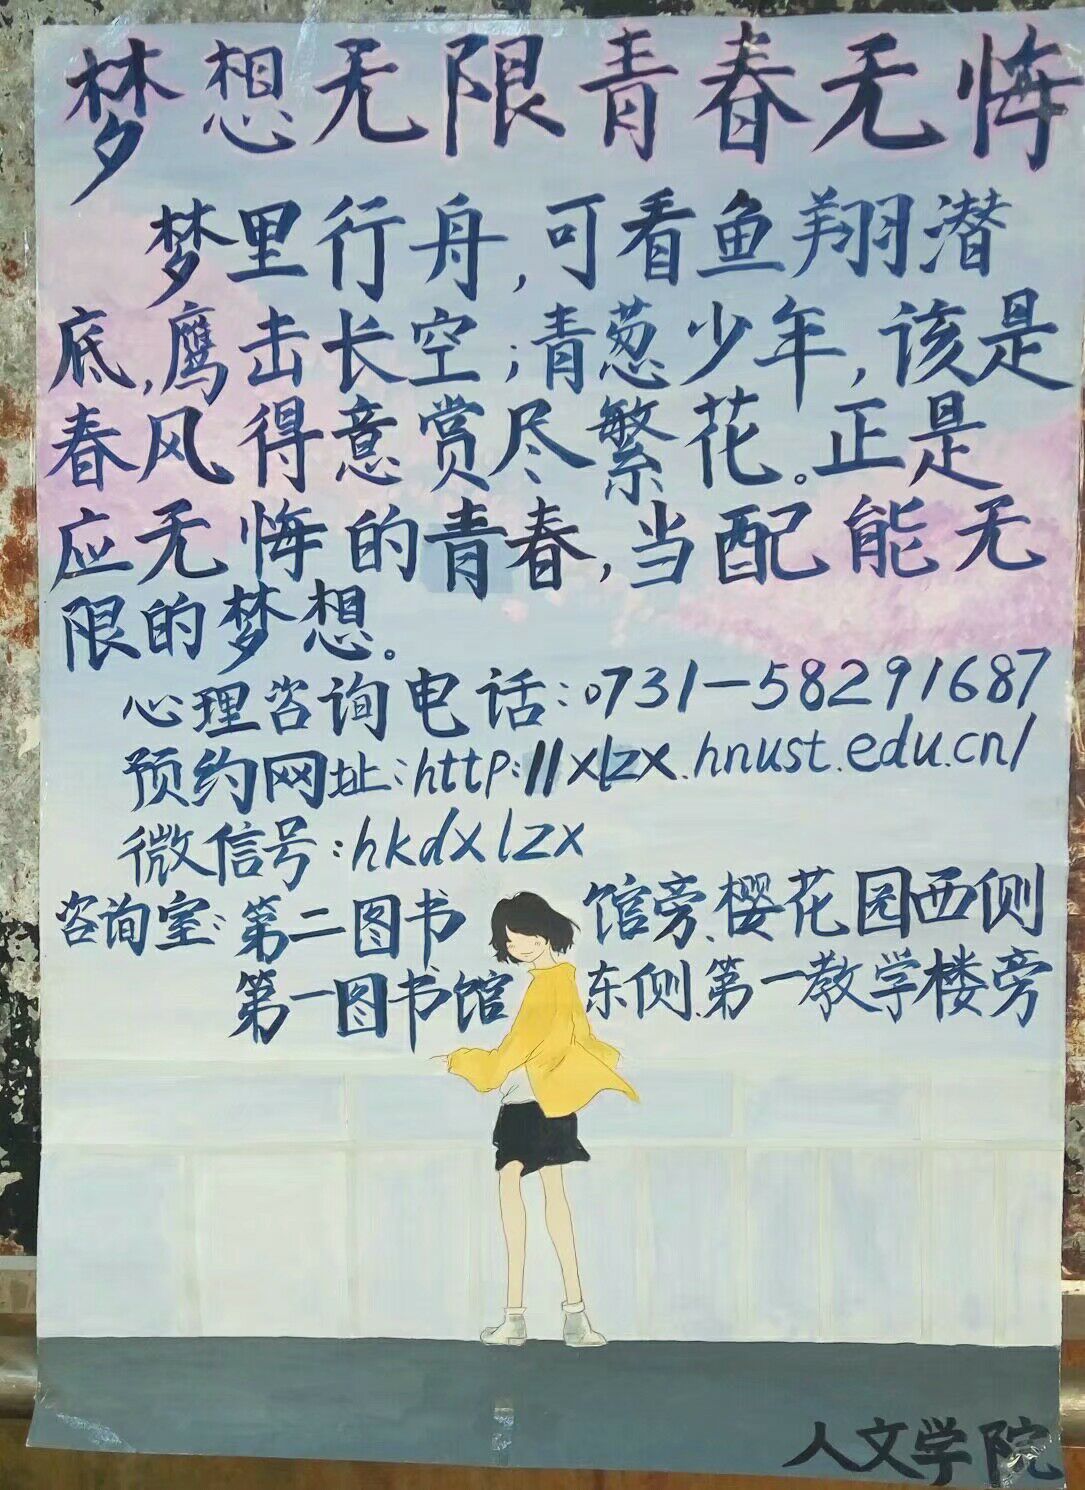 梦想无限青春无悔
梦里行舟,可看鱼翔潜
底,鹰击长空;青葱少年,该是
春风得意赏尽繁花。正是
应无悔的青春,当配能无
限的梦想。
心理咨询电话:0731-58291687
预约网址:http://xlzx.hnust.edu.cn/
微信号:hkdxlzx
咨询室:第二图书馆旁、樱花园西侧
第一图书馆东侧、第一教学楼旁
人文学院